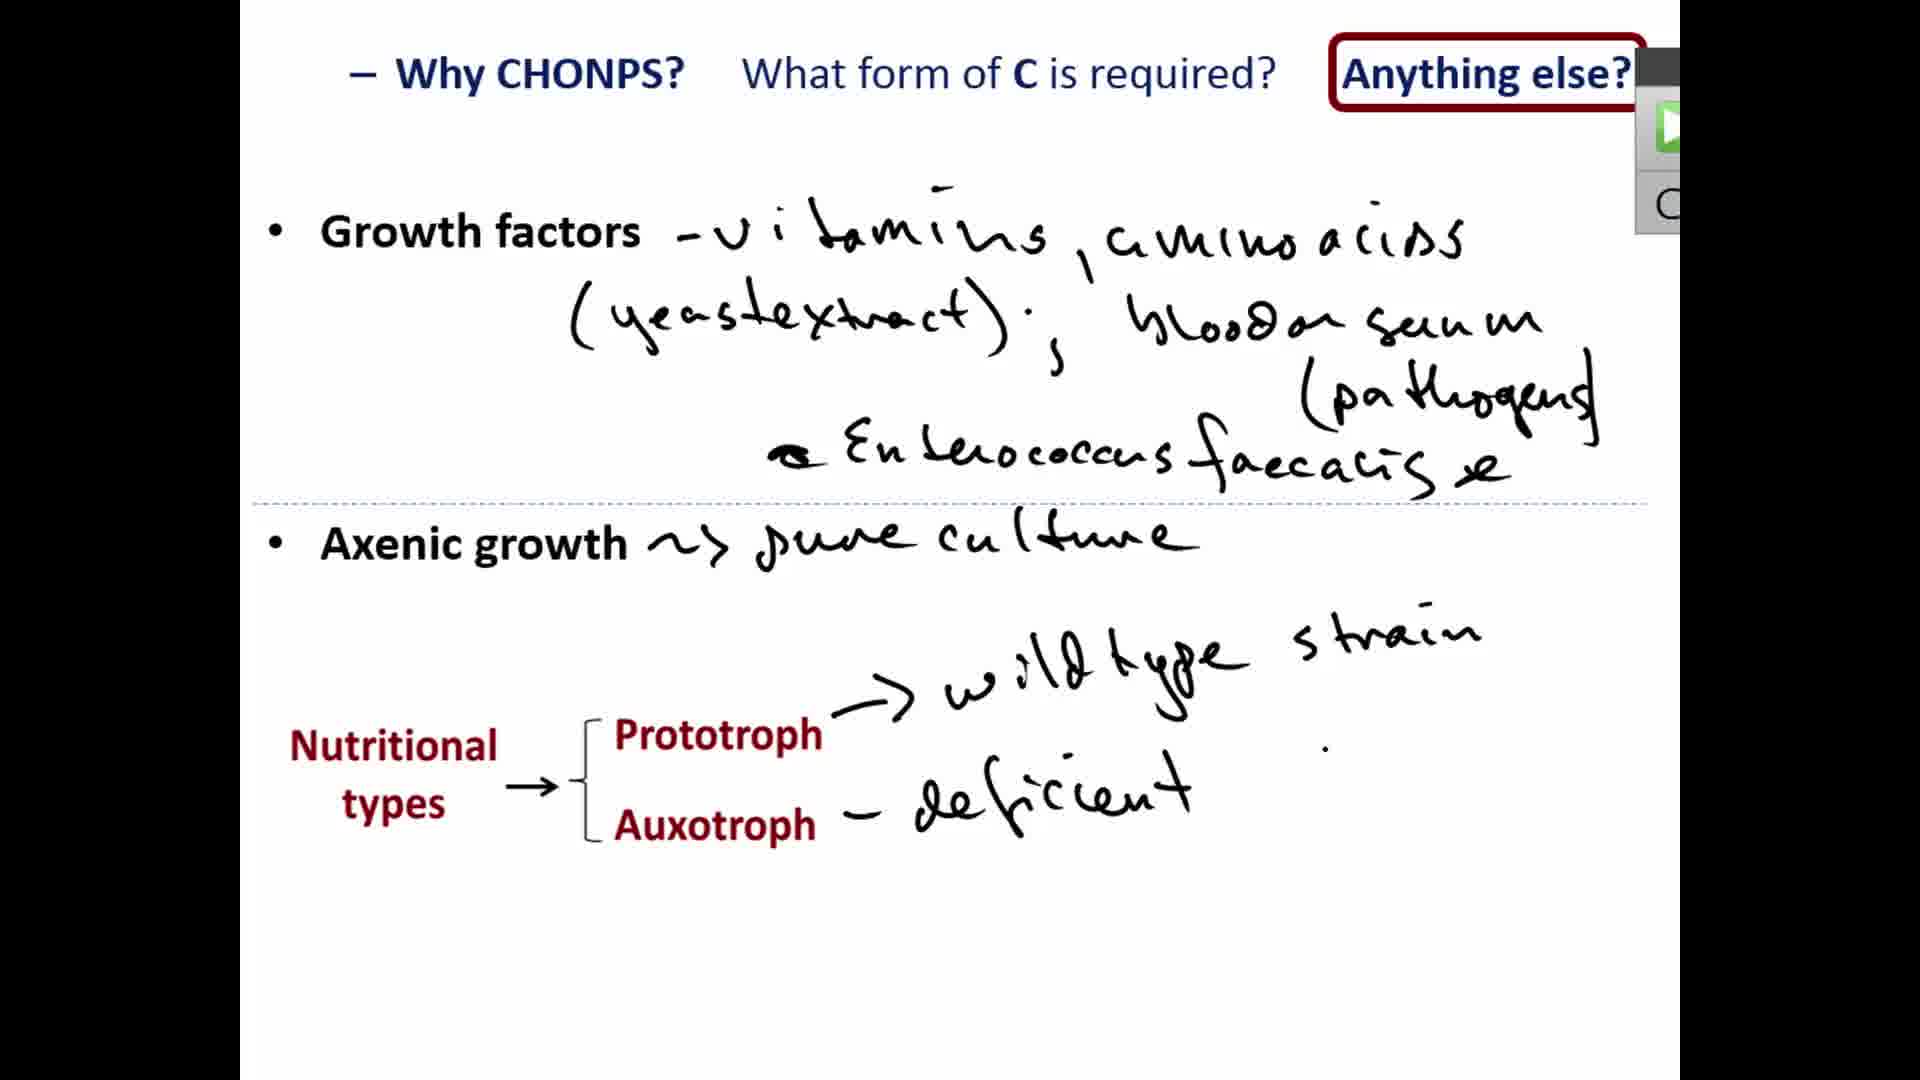 – Why CHONPS? What form of C is required? Anything else?
• Growth factors - vitamins, amino acids
(yeast extract); blood or serum
(pathogens)
- Enterococcus faecalis
• Axenic growth ~> pure culture
Nutritional types → Prototroph → wild type strain
Auxotroph - deficient